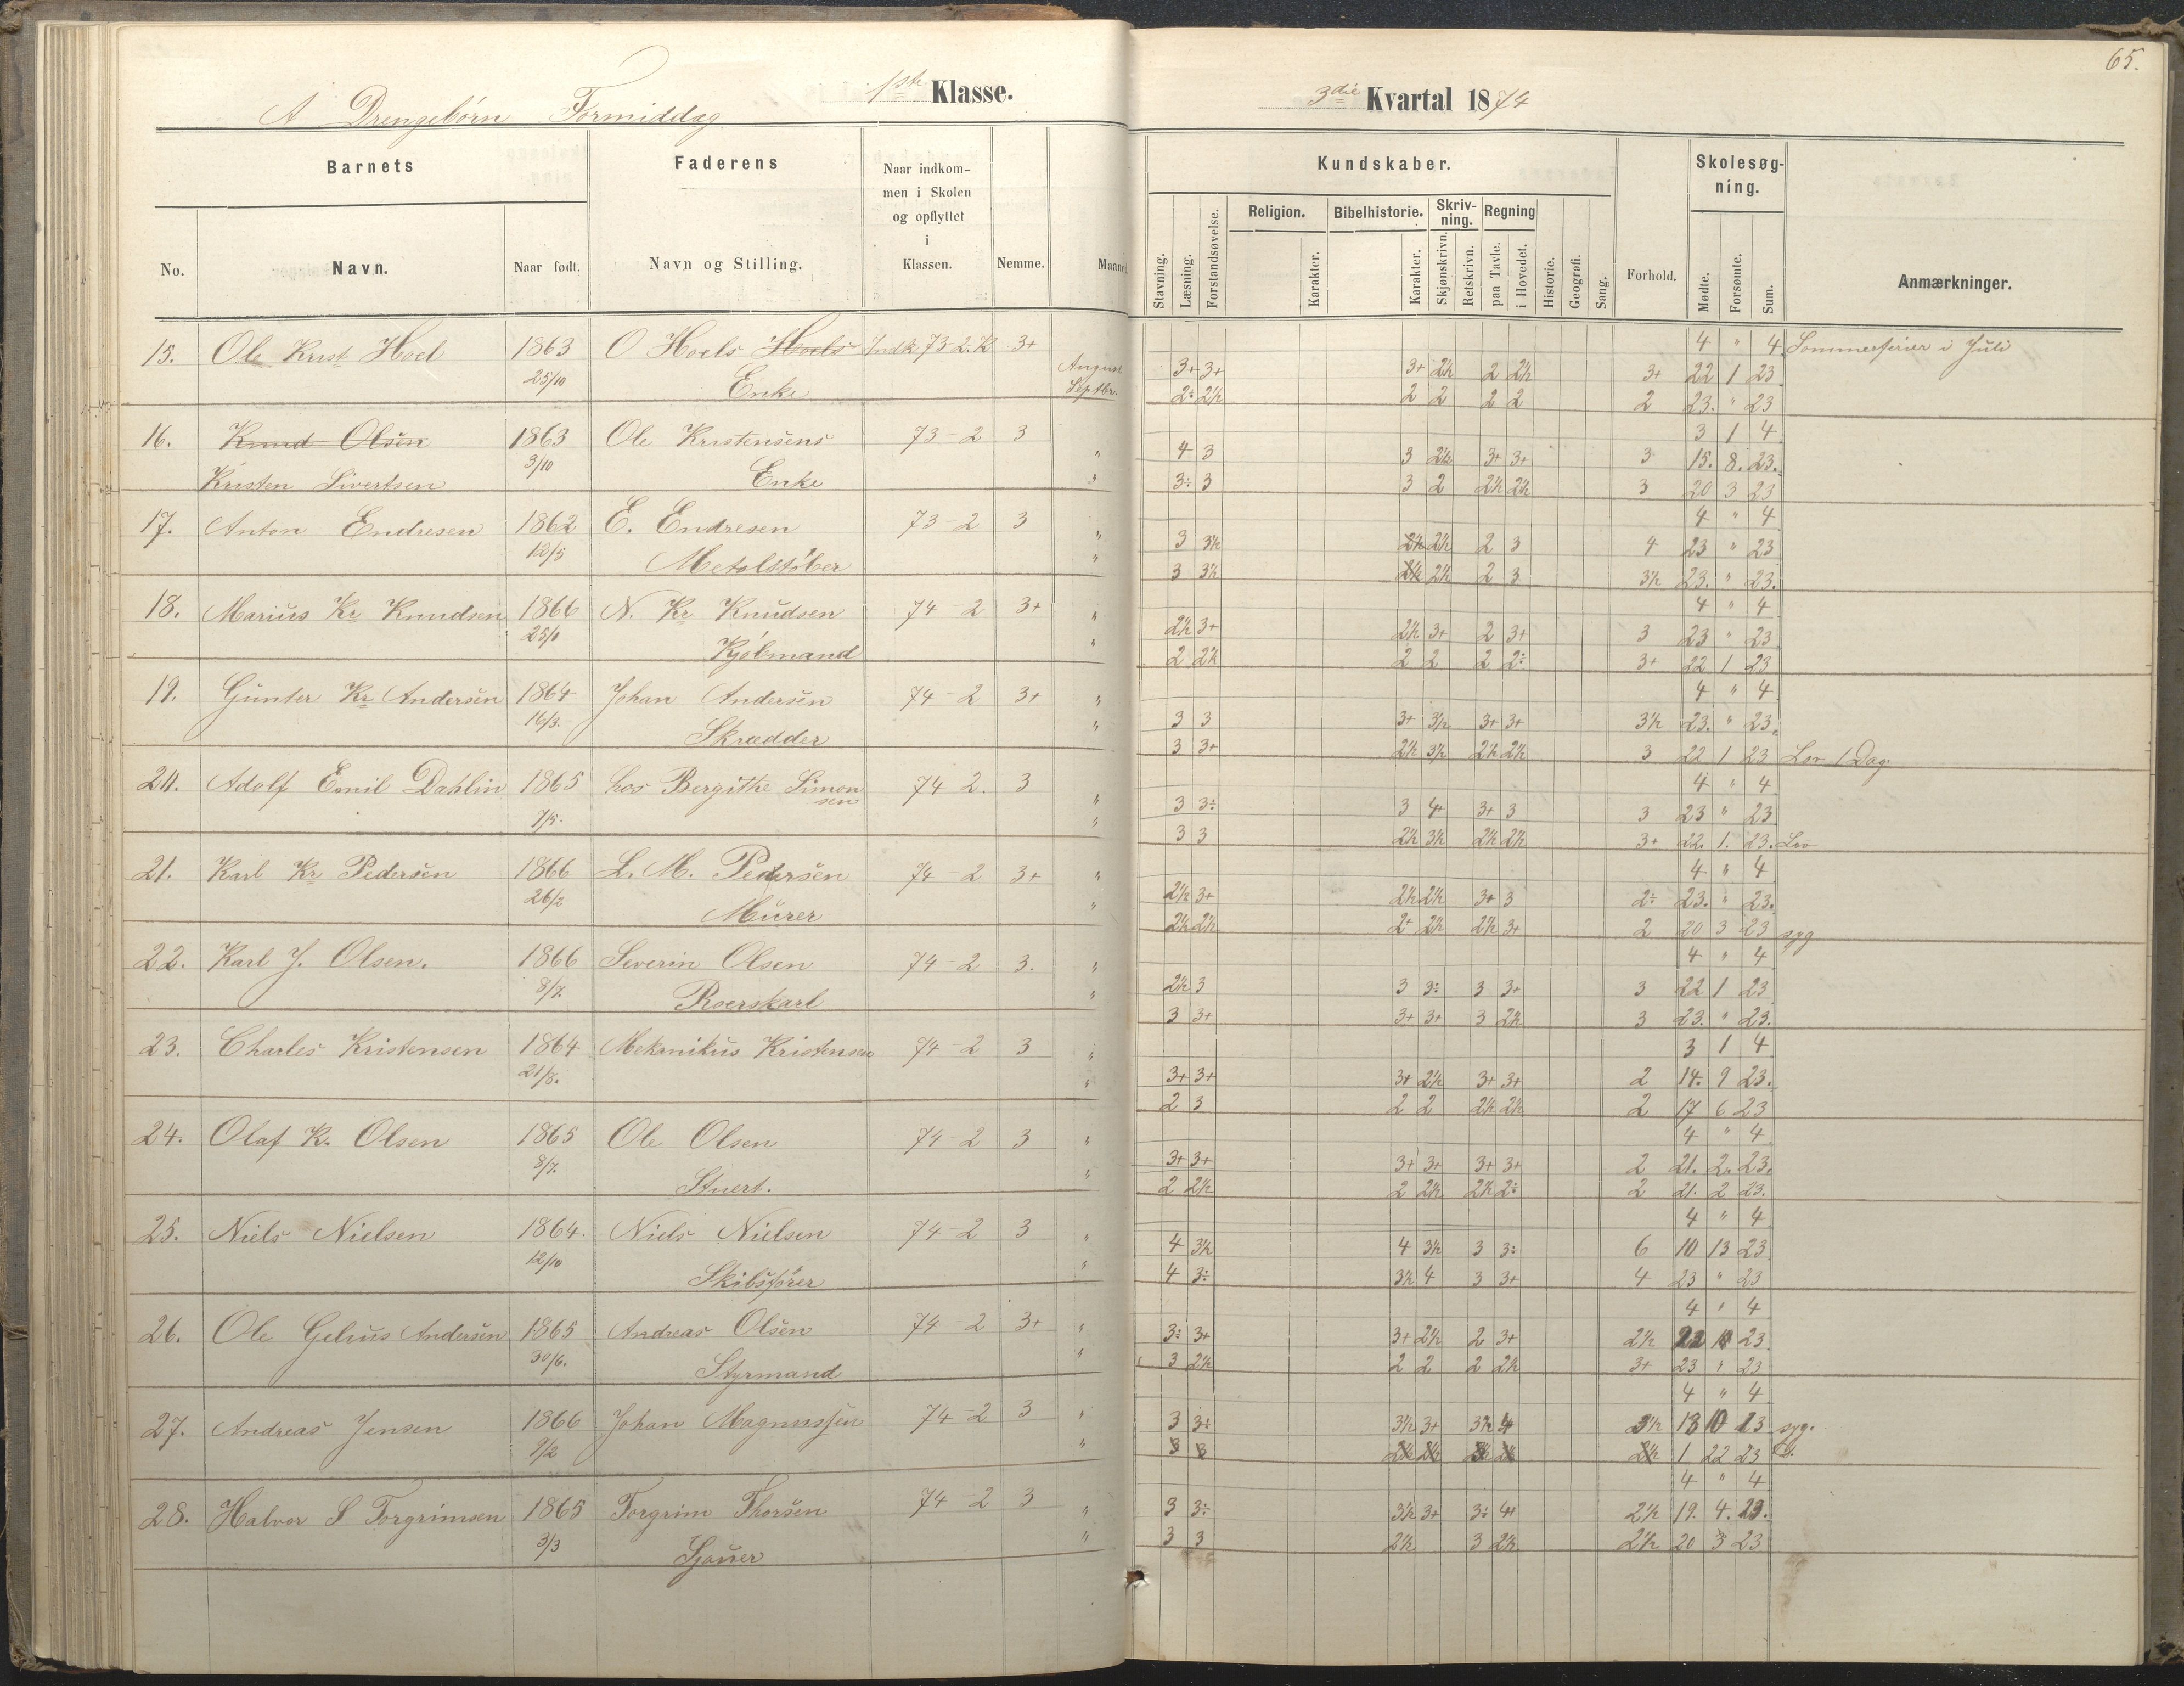 65.
A Drengebörn Formiddag 1ste Klasse. 3die Kvartal 1874
Barnets Faderens Naar indkommen i Skolen og opflyttet i Klassen. Nemme. Maaned Kundskaber. Forhold. Skolesøgning. Anmærkninger.
No. Navn. Naar født. Navn og Stilling.
Stavning. Læsning. Forstandsøvelse. Religion. Karakter. Bibelhistorie. Karakter. Skrivning. Skjønskrivn. Retskrivn. Regning paa Tavle. i Hovedet. Historie. Geografi. Sang. Mødte. Forsømte. Sum.
15. Ole Krist Hoel 1863 O Hoels Hoels Indk 73-2. K 3+ 4 " 4 Sommerferier i Juli
25/10 Enke August 3+ 3+ 3+ 2½ 2 2½ 3+ 22 1 23
Septbr. 2÷ 2½ 2 2 2 2 2 23. " 23
16. Knud Olsen 1863 Ole Kristensens 73-2 3 3 1 4
3/10 " 4 3 3 2½ 3+ 3+ 3 15. 8. 23.
Kristen Sivertsen Enke " 3÷ 3 3 2 2½ 2½ 3 20 3 23
17. Anton Endresen 1862 E. Endresen 73-2 3 4 " 4
12/5 " 3 3½ 2½ 2½ 2 3 4 23 " 23
Metalstöber " 3 3½ 2½ 2½ 2 3 3½ 23. " 23.
18. Marius Kr Knudsen 1866 N. Kr Knudsen 74-2 3+ 4 " 4
" 2½ 3+ 2½ 3+ 2 3+ 3 23 " 23
Kjöbmand " 2 2½ 2 2 2 2÷ 3+ 22 1 23
19. Günter Kr Andersen 1864 Johan Andersen 74-2 3+ 4 " 4
16/3. " 3 3 3+ 3½ 3+ 3+ 3½ 23. " 23.
Skrædder " 3 3+ 2½ 3½ 2½ 2½ 3 22 1 23 Lov 1 Dag.
20. Adolf Emil Dahlin 1865 hos Bergithe Simonsen 74 2. 3 4 " 4
7/5. " 3 3÷ 3 4+ 3+ 3 3 23 " 23
" 3 3 2½ 3½ 2½ 2½ 3+ 22. 1. 23. Lov
21. Karl Kr Pedersen 1866 L. M. Pedersen 74-2 3+ 4 " 4
26/2 " 2½ 3+ 2½ 2½ 3+ 3 2÷ 23. " 23.
Murer " 2½ 2½ 2+ 2½ 2½ 3+ 2 20 3 23 syg
22. Karl J. Olsen. 1866 Severin Olsen 74-2 3. 4 " 4
8/7. " 2½ 3 3 3÷ 3 3+ 3 22 1 23
Roerskarl " 3 3+ 3+ 3+ 3 2½ 3 23. " 23.
23. Charles Kristensen 1864 Mekanikus Kristensen 74-2 3 3 1 4
21/8. " 3+ 3+ 3+ 2½ 3+ 3+ 2 14. 9 23.
" 2 3 2 2 2½ 2½ 2 17 6 23
24. Olaf K. Olsen 1865 Ole Olsen 74-2 3 4 " 4
8/7. " 3+ 3+ 3+ 3+ 3+ 3+ 2 21. 2. 23.
Stuert. " 2 2½ 2 2½ 2½ 2÷ 2 21. 2 23.
25. Niels Nielsen 1864. Niels Nielsen 74-2 3 4 " 4
12/10 " 4 3½ 4 3½ 3 3÷ 6 10 13 23
Skibsfører " 4 3÷ 3½ 4 3 3+ 4 23 " 23
26. Ole Gelius Andersen 1865 Andreas Olsen 74-2 3+ 4 " 4
30/6. " 3÷ 3+ 3+ 2½ 2 3+ 2½ 22 1 23
Styrmand " 3 2½ 2 2 2 2½ 3+ 23 " 23
27. Andreas Jensen 1866 Johan Magnussen 74-2 3 4 " 4
9/2 " 3 3÷ 3½ 3+ 3½ 4 3½ 13 10 23 syg.
" 1 22 23
28. Halvor S Torgrimsen 1865 Torgrim Thorsen 74-2 3 4 " 4
3/3 " 3 3÷ 3½ 3+ 3÷ 4+ 2½ 19. 4. 23.
Sjauer " 3 3 2½ 3 2½ 2½ 20 3 23